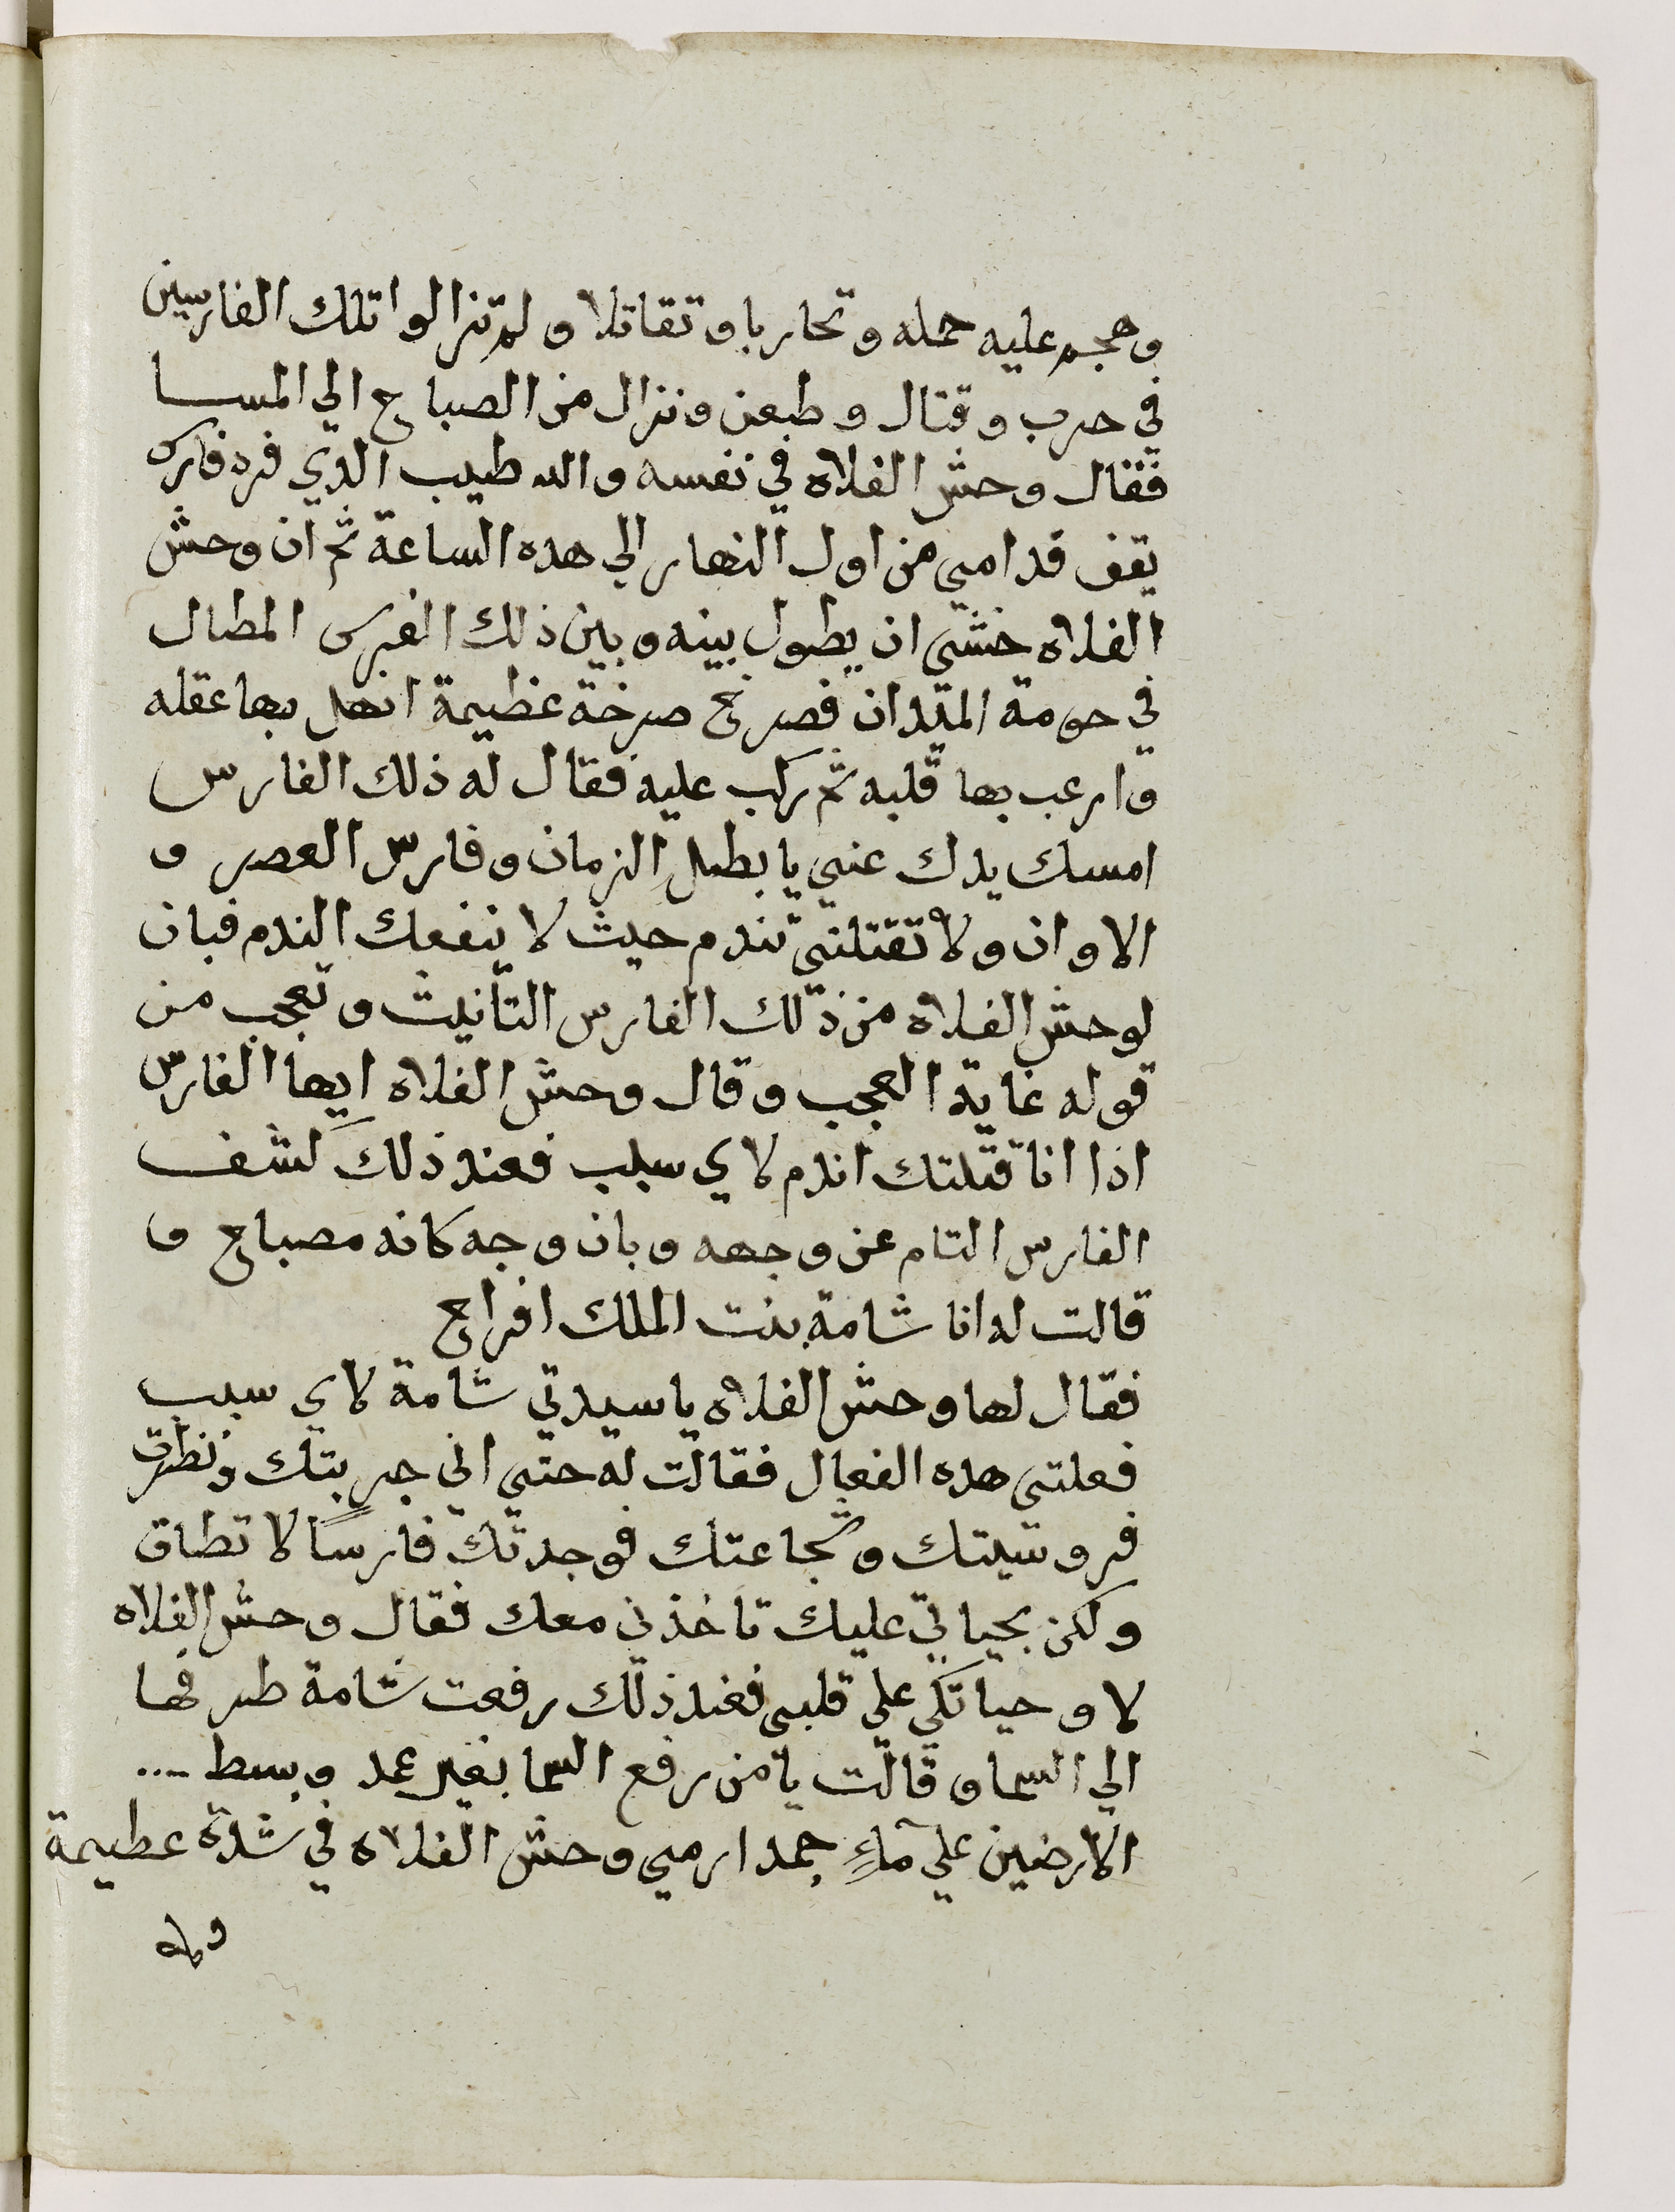 وهجم عليه حمله وتحاربا وتقاتلا ولم تزالوا تلك الفارسين
في حرب وقتال وطعن ونزال من الصباح الي المسا
فقال وحش الفلاه في نفسه والله طيب الدي فرد فارس
يقف قدامي من اول النهار الي هده الساعة ثم ان وحش
الفلاه خشي ان يطول بينه وبين ذلك الفرس المطال
في حومة الميدان فصرخ صرخة عظيمة انهل بها عقله
وارعب بها قلبه ثم ركب عليه فقال له ذلك الفارس
امسك يدك عني يا بطل الزمان وفارس العصر و
الاوان ولا تقتلني تندم حيث لا ينفعك الندم فبان
لوحش الفلاه من ذلك الفارس التانيث وتعجب من
قوله غاية العجب وقال وحش الفلاه ايها الفارس
اذا انا قتلتك اندم لاي سبب فعند ذلك كشف
الفارس التام عن وجهه وبان وجه كانه مصباح و
قالت له انا شامة بنت الملك افراح
فقال لها وحش الفلاه يا سيدتي شامة لاي سبب
فعلتي هده الفعال فقالت له حتي اني جربتك ونظرت
فروسيتك وشجاعتك فوجدتك فارسًا لا تطاق
ولكن بحياتي عليك تاخذني معك فقال وحش الفلاه
لا وحياتكي علي قلبي فعند ذلك رفعت شامة طرفها
الي السما وقالت يا من رفع السما بغير عمد وبسط ....
الارضين علي مآءٍ جمد ارمي وحش الفلاه في شدة عظيمة